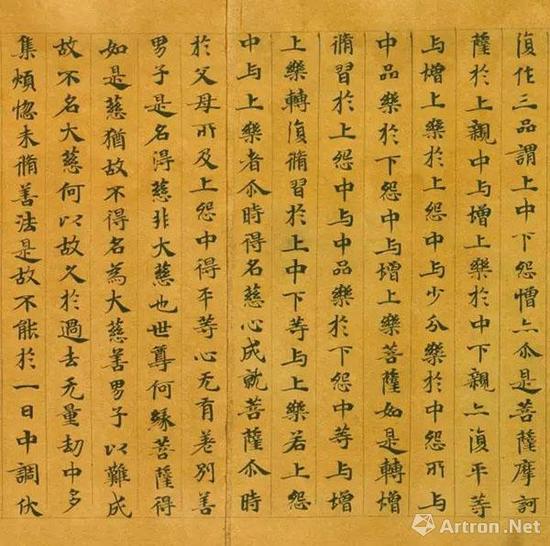 復作三品謂上中下怨憎亦尒是菩薩摩訶
薩於上親中与增上樂於中下親亦復平等
与增上樂於上怨中与少分樂於中怨所与
中品樂於下怨中与增上樂菩薩如是轉增
脩習於上怨中与中品樂於下怨中等与增
上樂轉復脩習於上中下等与上樂若上怨
中与上樂者尒時得名慈心成就菩薩尒時
於父母所及上怨中得平等心无有差別善
男子是名得慈非大慈也世尊何緣菩薩得
如是慈猶故不得名為大慈善男子以難成
故不名大慈何以故久於過去无量劫中多
集煩惱未脩善法是故不能於一日中調伏
Artron.Net